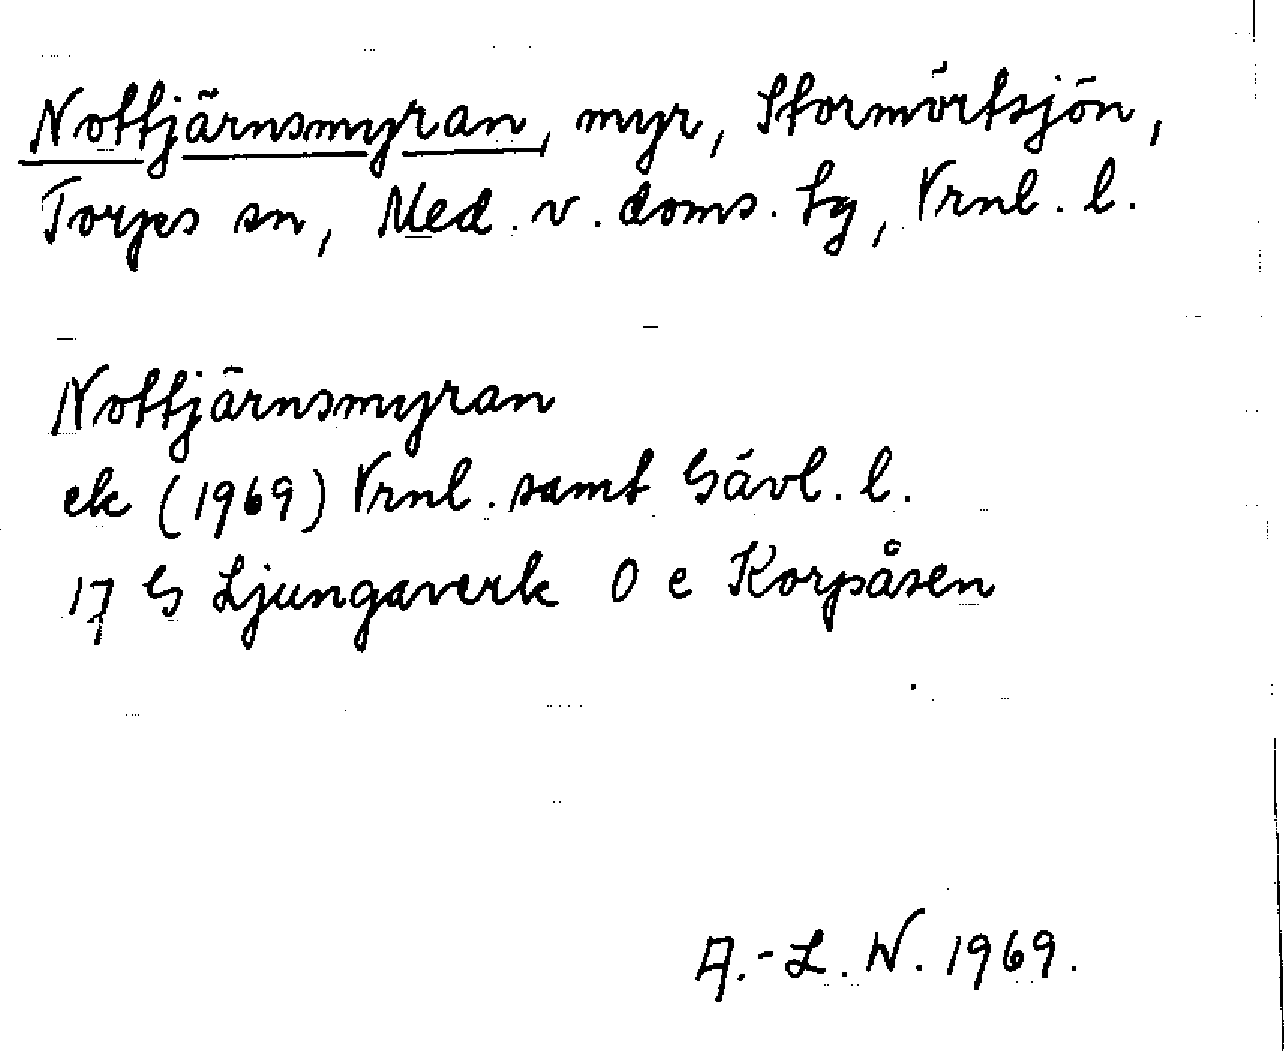 Nottjärnsmyran, myr, Stormörtsjön,
Torps sn, Med. v. doms. tg, Vrnl. l.
Nottjärnsmyran
ek (1969) Vrnl. samt Gävl. l.
17 G Ljungaverk 0 e Korpåsen
A.-L. W. 1969.